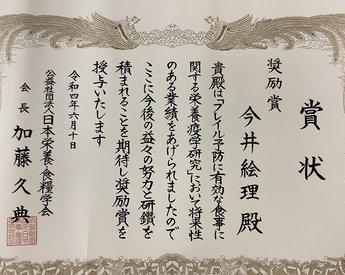 賞状
奨励賞
今井絵理殿
貴殿は「フレイル予防に有効な食事に
関する栄養疫学研究」において将来性
のある業績をあげられましたので
ここに今後の益々の努力と研鑽を
積まれることを期待し奨励賞を
授与いたします
令和四年六月十日
公益社団法人日本栄養・食糧学会
会長 加藤久典